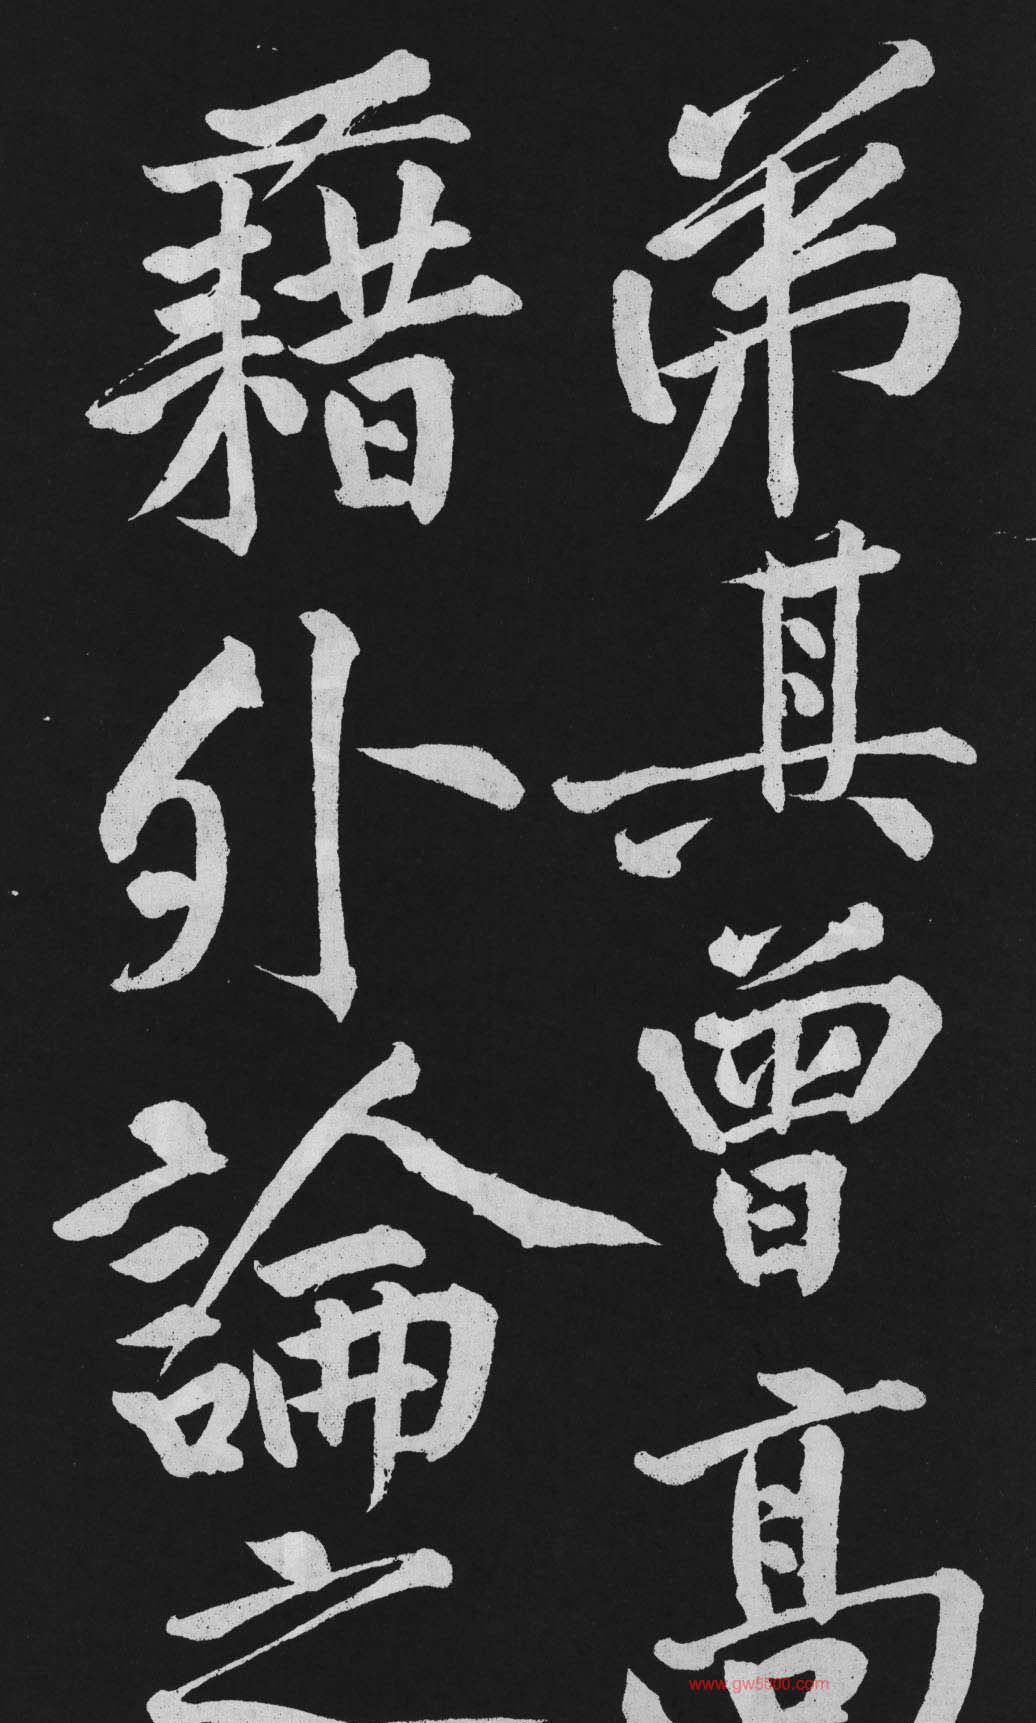 弟其曾高
藉外論之
www.gw5800.com